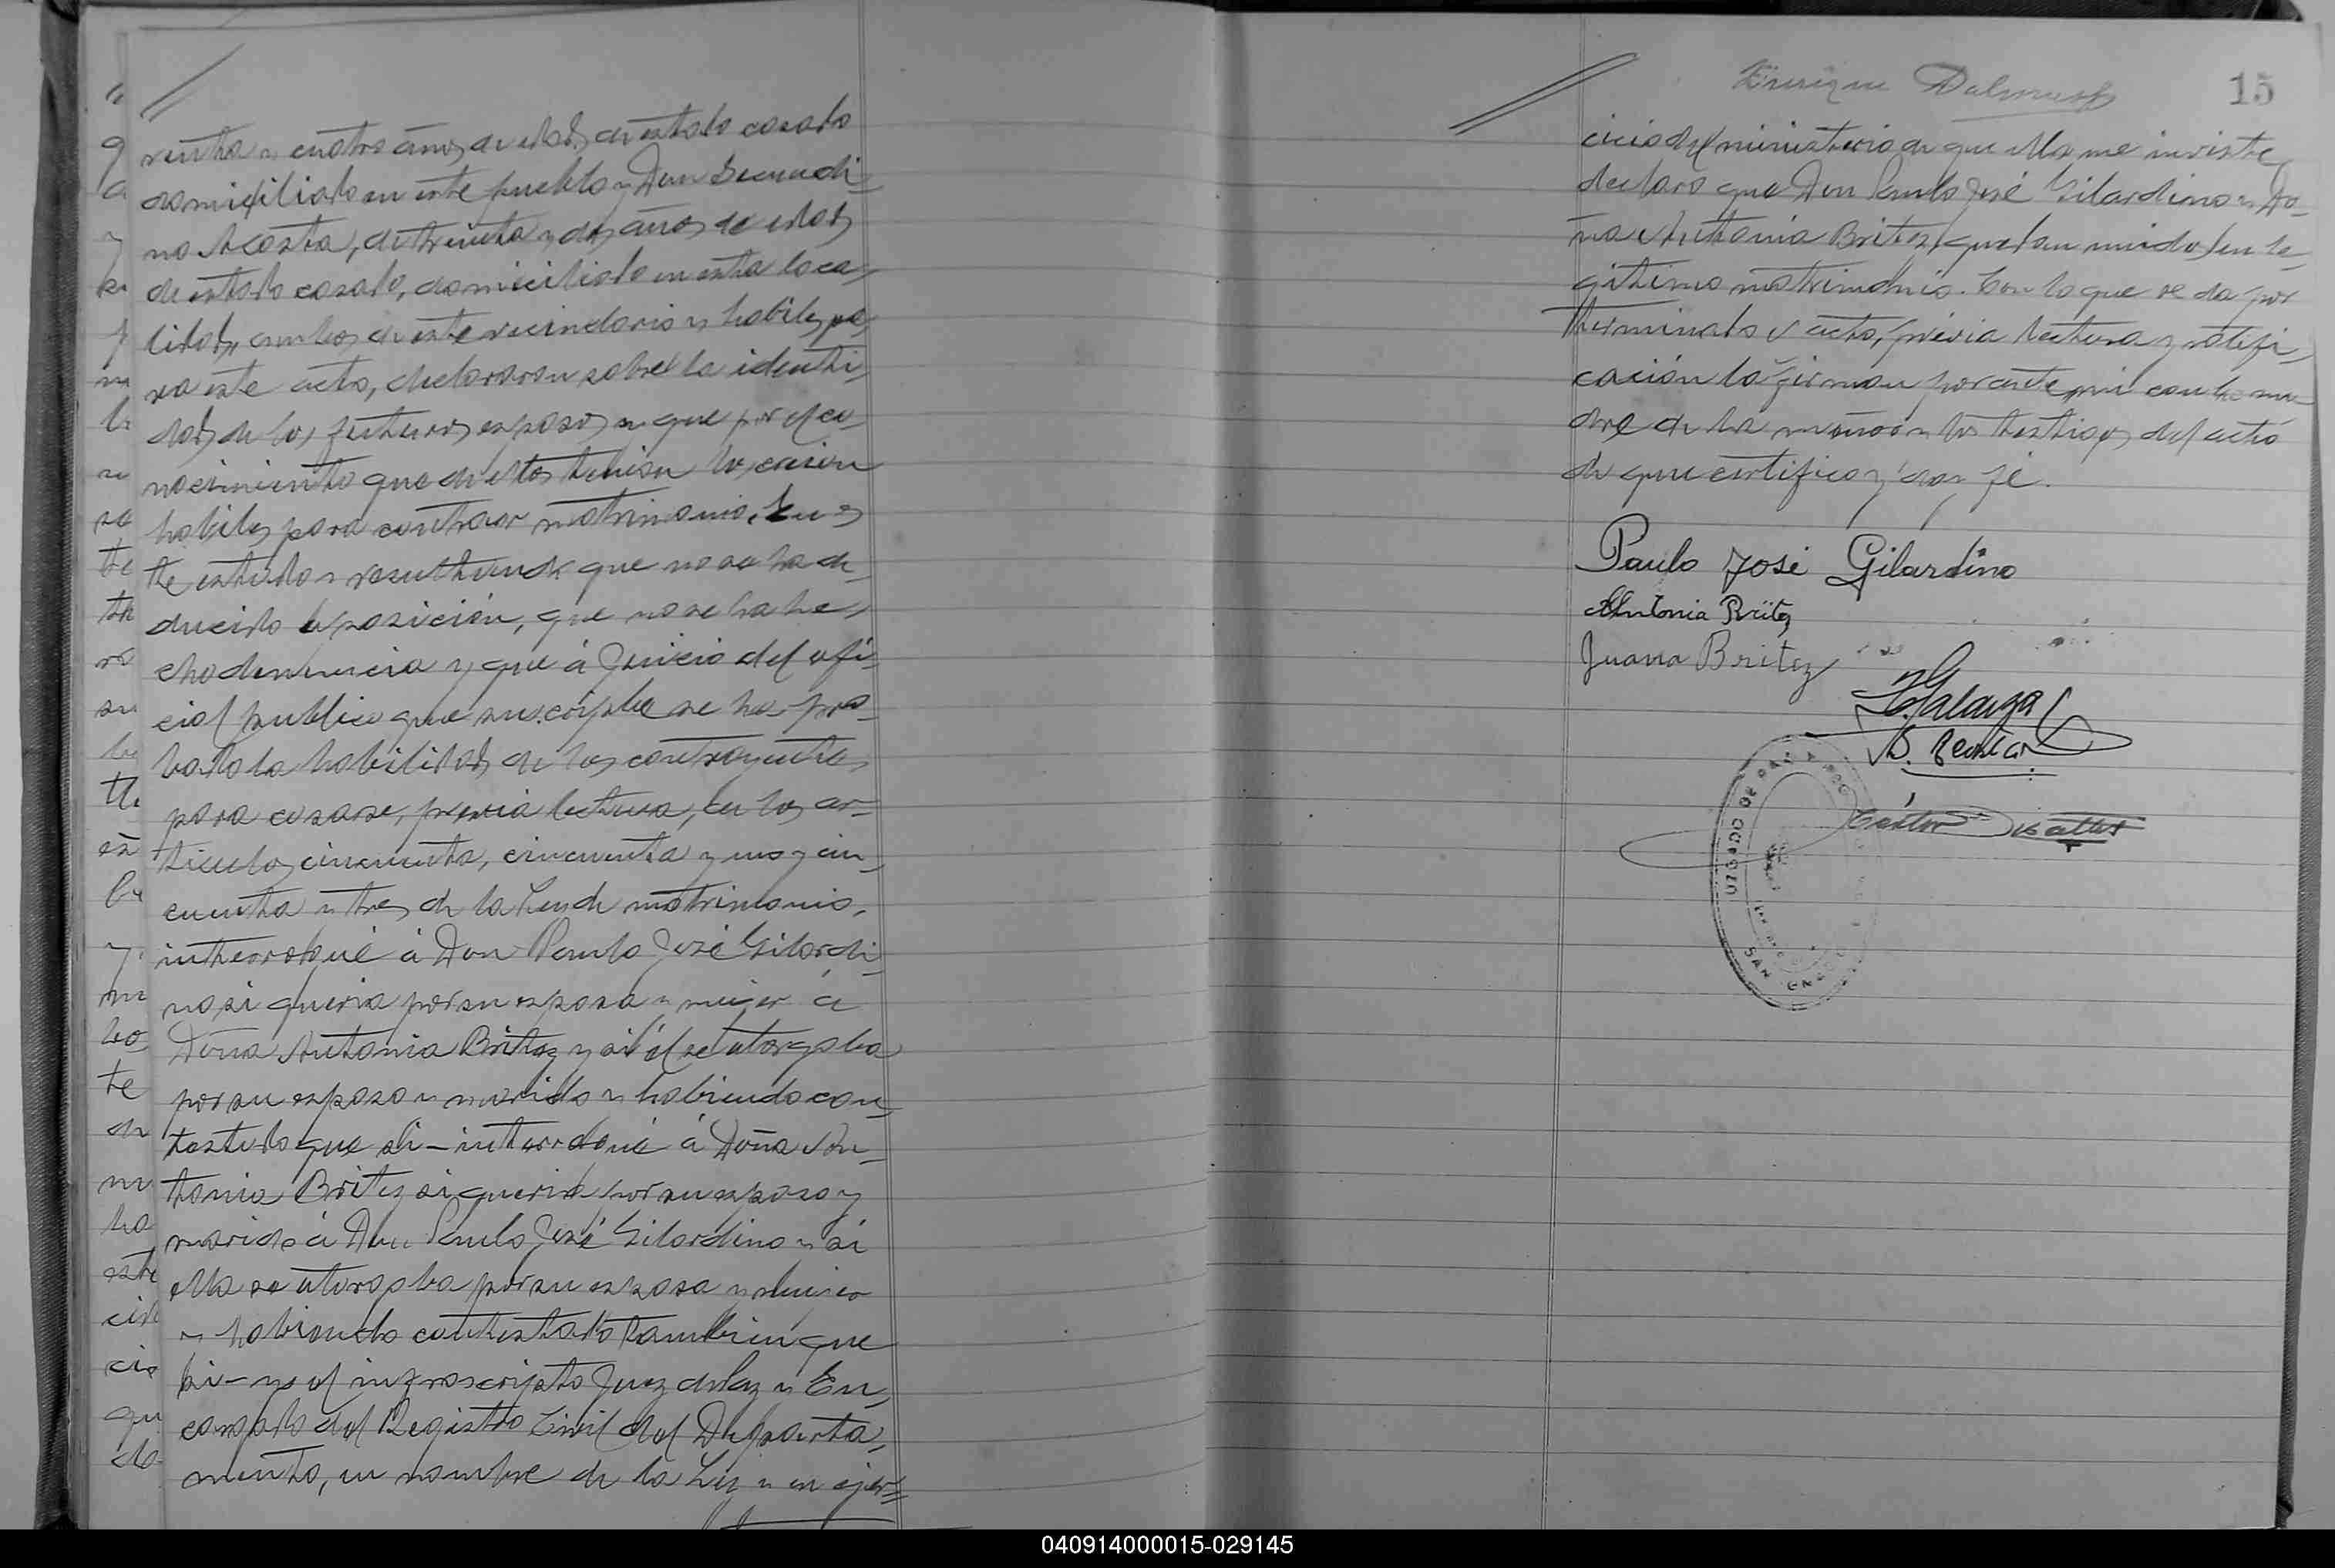 renta y cuatro años de edad, de estado casado
domiciliado en este pueblo y Don Secundi-
no Acosta, de treinta y dos años de edad,
de estado casado, domiciliado en esta loca-
lidad, ambos de este vecindario y habiles pa-
ra este acto, declararon sobre la identi-
dad de los futuros esposos y que por el co-
nocimiento que de ellos tenian los creian
habiles para contraer matrimonio. En es-
te estado y resultando que no se ha de-
ducido oposición, que no se ha he-
cho denuncia y que á juicio del ofi-
cial publico que suscribe se ha pro-
bado la habilidad de los contrayentes
para casarse, previa lectura, de los ar-
ticulos cincuenta, cincuenta y uno y cin-
cuenta y tres de la Ley de matrimonio,
interrogué á Don Paulo José Gilardi-
no si queria por su esposa y mujer á
Doña Antonia Britez y si él se otorgaba
por su esposo y marido y habiendo con-
testado que si - interrogué á Doña An-
tonia Britez si queria por su esposo y
marido á Don Paulo José Gilardino y si
ella se otorgaba por su esposa y mujer
y habiendo contestado tambien que
si - yo el infrascripto Juez de Paz y En-
cargado del Registro Civil del Departa-
mento, en nombre de la Ley y en ejer-
Enrique
15
cicio del ministerio de que ella me inviste,
declaro que Don Paulo José Gilardino y Do-
ña Antonia Britez, quedan unidos en le-
gitimo matrimonio. Con lo que se da por
terminado el acto, previa lectura y ratifi-
cación la firman por ante mi con la ma-
dre de la menor y los testigos del acto
de que certifico y doy fé.
Paulo José Gilardino
Antonia Britez
Juana Britez
Galarza
S. Acosta
JUZGADO DE PAZ
SAN
040914000015-029145